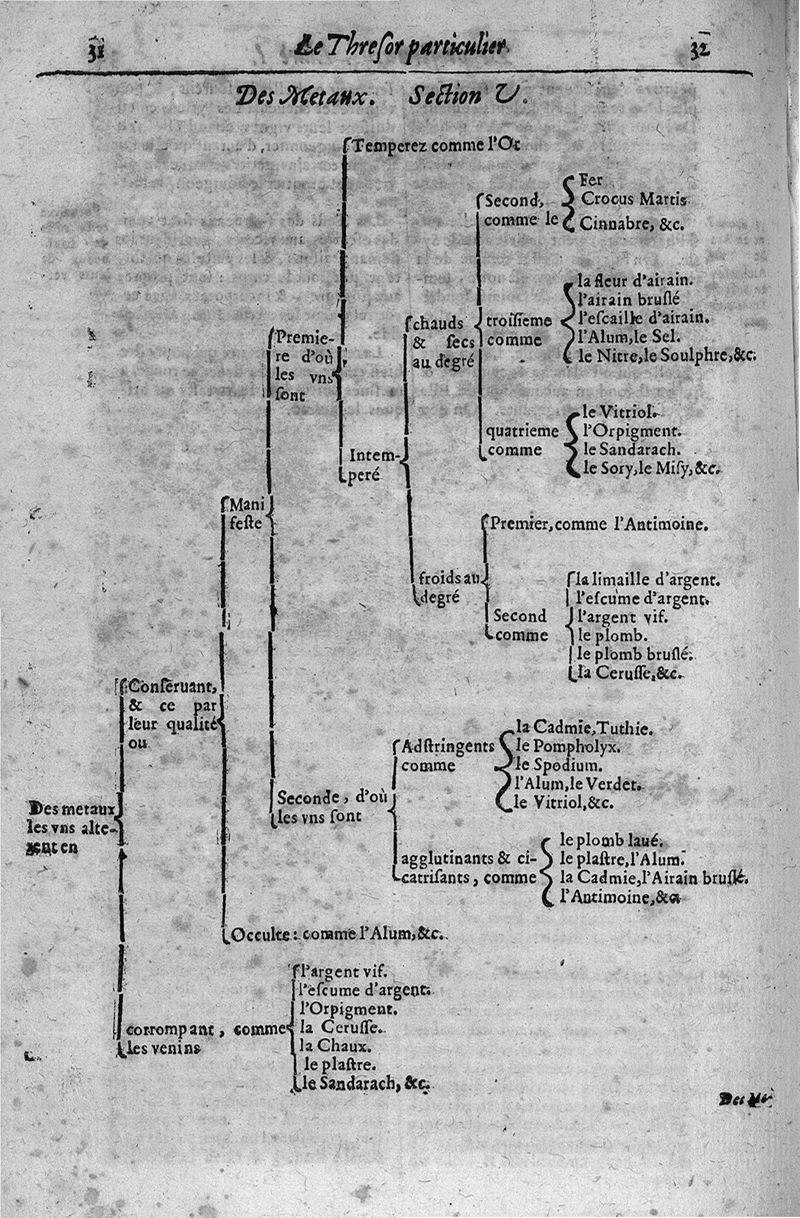 31 Le Threſor particulier. 32
Des Metaux. Section V.
Temperez comme l'Or
Second,
comme le
Fer
Crocus Martis
Cinnabre, &c.
chauds
& ſecs
au degré
troiſieme
comme
la fleur d'airain.
l'airain bruſlé
l'eſcaille d'airain.
l'Alum, le Sel.
le Nitre, le Soulphre, &c.
Premie-
re d'où
les vns
ſont
quatrieme
comme
le Vitriol.
l'Orpigment.
le Sandarach.
le Sory, le Miſy, &c.
Intem-
peré
Mani
feſte
Premier, comme l'Antimoine.
froids au
degré
Second
comme
la limaille d'argent.
l'eſcume d'argent.
l'argent vif.
le plomb.
le plomb bruſlé.
la Ceruſſe, &c.
Conſeruant,
& ce par
leur qualité
ou
Adſtringents
comme
la Cadmie, Tuthie.
le Pompholyx.
le Spodium.
l'Alum, le Verdet.
le Vitriol, &c.
Seconde, d'où
les vns ſont
Des metaux
les vns alte-
rent en
agglutinants & ci-
catriſants, comme
le plomb laué.
le plaſtre, l'Alum.
la Cadmie, l'Airain bruſlé.
l'Antimoine, &c
Occulte: comme l'Alum, &c.
corrompant, comme
les venins
l'argent vif.
l'eſcume d'argent.
l'Orpigment.
la Ceruſſe.
la Chaux.
le plaſtre.
le Sandarach, &c.
Des